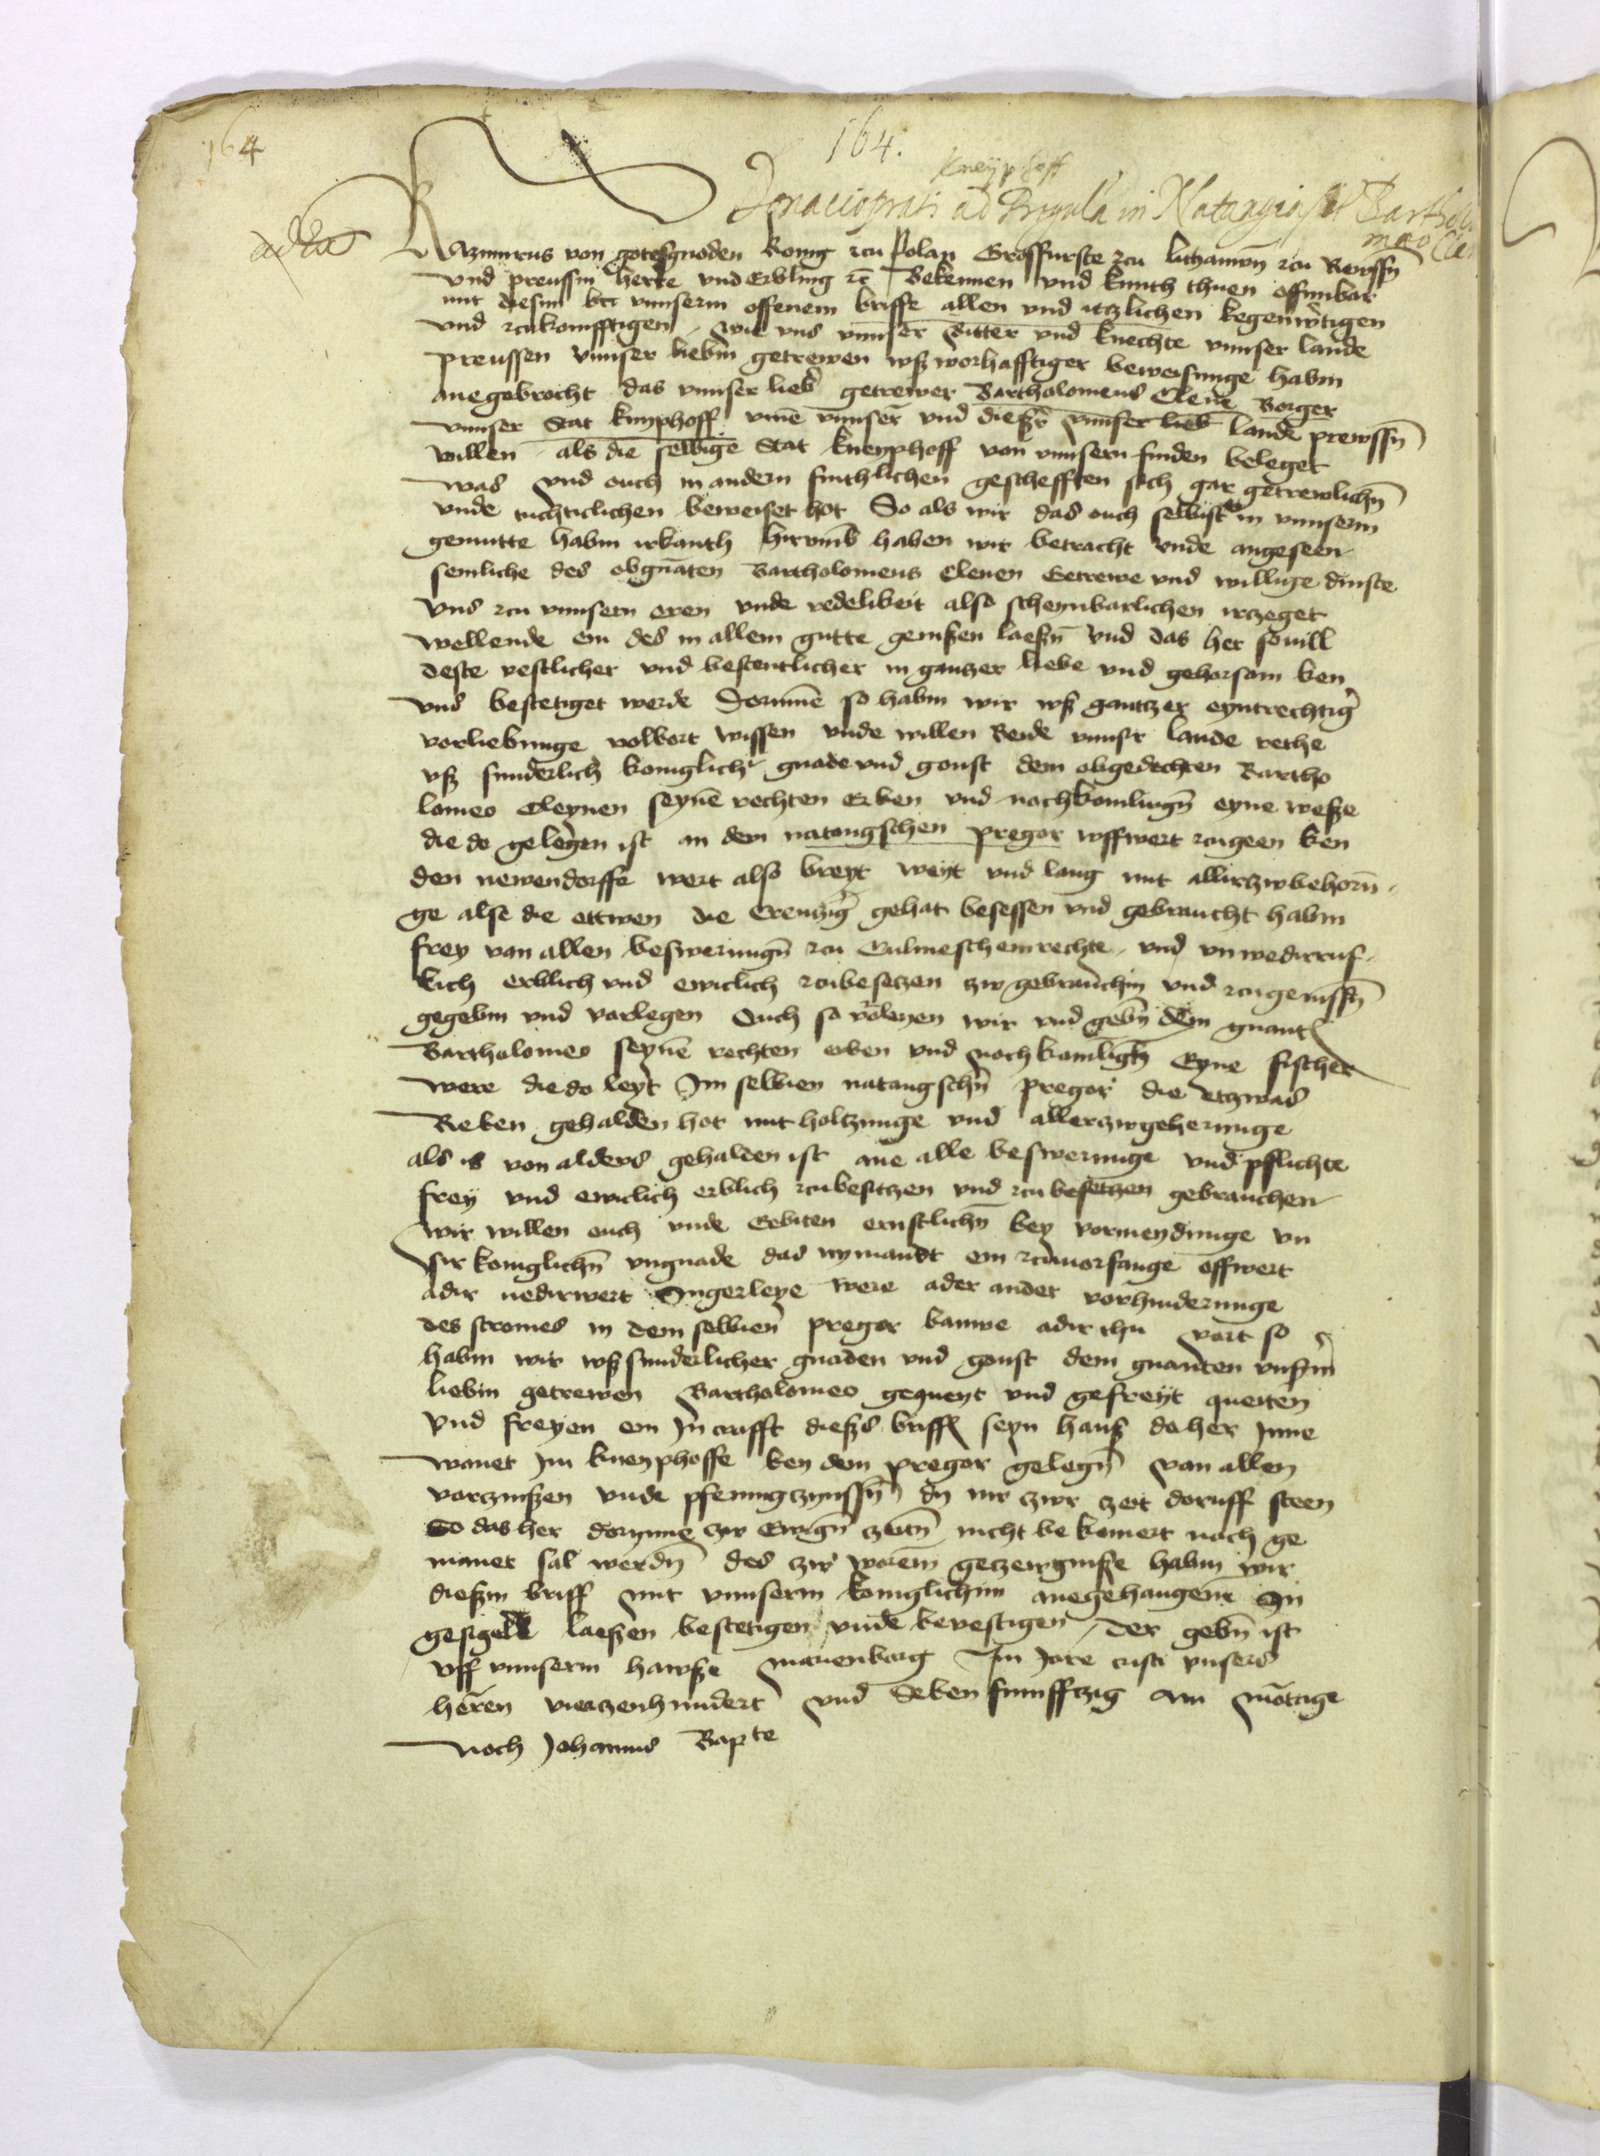 164
164.
Kneyphoff
Donacio prati ad Pregula in Natangia sit Bartholo
maeo Cle
Kazimirus von gotesgnoden konig zcu Polan Grosffurste zcu lithauwen zcu Rewssn
vnd preussin herre vnd Erbling etc Bekennen vnd kunth thuen offinbar
mit diesim vnnserm offenem briffe allen vnd itzlichen kegenwertigen
vnd zcukomfftigen wie vns vnnser Ritter vnd knechte vnnser lande
preussen vnnser liebin getrewen wsz worhafftiger beweisunge habin
anegebrocht das vnnser lieber getrewer Bartholomeus Clene Borger
vnnser Stat knyphoff vmme vnnser vnd dieszer vnnser lieb lande prewssn
willen als die selbige Stat kneyphoff von vnnsern finden beleget
was vnd ouch in andern finthlichen geschefften sich gar getrewlichn
vnde tuchticlichen beweiset hot So als wir das ouch selbist in vnnserm
gemutte habin irkanth hirumb haben wir betracht vnde angeseen
semliche des obgnaten Bartholomeus Clenen Getrewe vnd willige dinste
vns zcu vnnsern eren vnde redelikeit also scheynbarlichen irczeget
wellende em des in allem gutte genissen laeszn vnd das her souill
deste vestlicher vnd bestentlicher in gantzer liebe vnd gehorsam ken
vns bestetiget werde Dorumme so habin wir wsz gantzer eyntrechtiger
vorliebunge volbort wissen vnde willen Beide vnnser lande rethe
vsz sunderlicher koniglicher gnade vnd gonst dem obgedochten Bartho
lomeo Cleynen seyne rechten Erben vnd nachkomlingn eyne wesze
die do gelegen ist an dem natangschen pregor wffwert zcugeen ken
den newendorffe wert also breyt weyt vnd lang mit allirzwbehorun
ge alse die ettwen die Creuziger gehat besessen vnd gebraucht habin
frey von allen beszwerungn zcu Culmeschemrechte vnd vnwedirruf
lich erblich vnd ewiclich zcubesetzen zw gebrauchin vnd zcugenissn
gegebin vnd vorlegen Ouch so vorleyen wir vnd gebn dem gnanten
Bartholomeo seyne rechten erben vnd nochkomligen Eyne fischer
were die do leyt Im selbien natangschn pregor die etzwas
Reken gehalden hot mit holtzunge vnd allerzwgeherunge
als is von alders gehalden ist ane alle beswerunge vnd pflichte
frey vnd ewiclich erblich zcubesitzen vnd zcubesetzen gebrauchen
wir willen ouch vnde Gebiten ernstlichn bey vormeydunge vn
sir koniglichn vngnade das nymandt em zcuuorfange offwert
adir nedirwert Ingerleye were ader ander vorhinderunge
des stromes in dem selbien pregor bauwe adir thu vort so
habin wir wsz sunderlicher gnaden vnd gonst dem gnanten vnszerm
liebin getrewen Bartholomeo gequeyt vnd gefreyt queiten
vnd freyen em In crafft dieszs briffs seyn hausz do her Inne
wonet Im kneyphoffe ken dem pregor gelegn von allen
vorzinszen vnde pfennigzynssn dy nw zwr zeit doruff steen
So das her dorynne zw Ewign zeitn nicht bekomert noch ge
manet sal werdn des zw worem getzewgnisze habin wir
dieszin briff mit vnnserm koniglichim anegehangene In
gesigell laeszen bestetigen vnde bevestigen Der gebn ist
vff vnnserm hawsze marienborg Im Jore cristi vnsers
herren vierzenhundert vnd Seben funfftzig am mōtage
noch Johannis Bapte